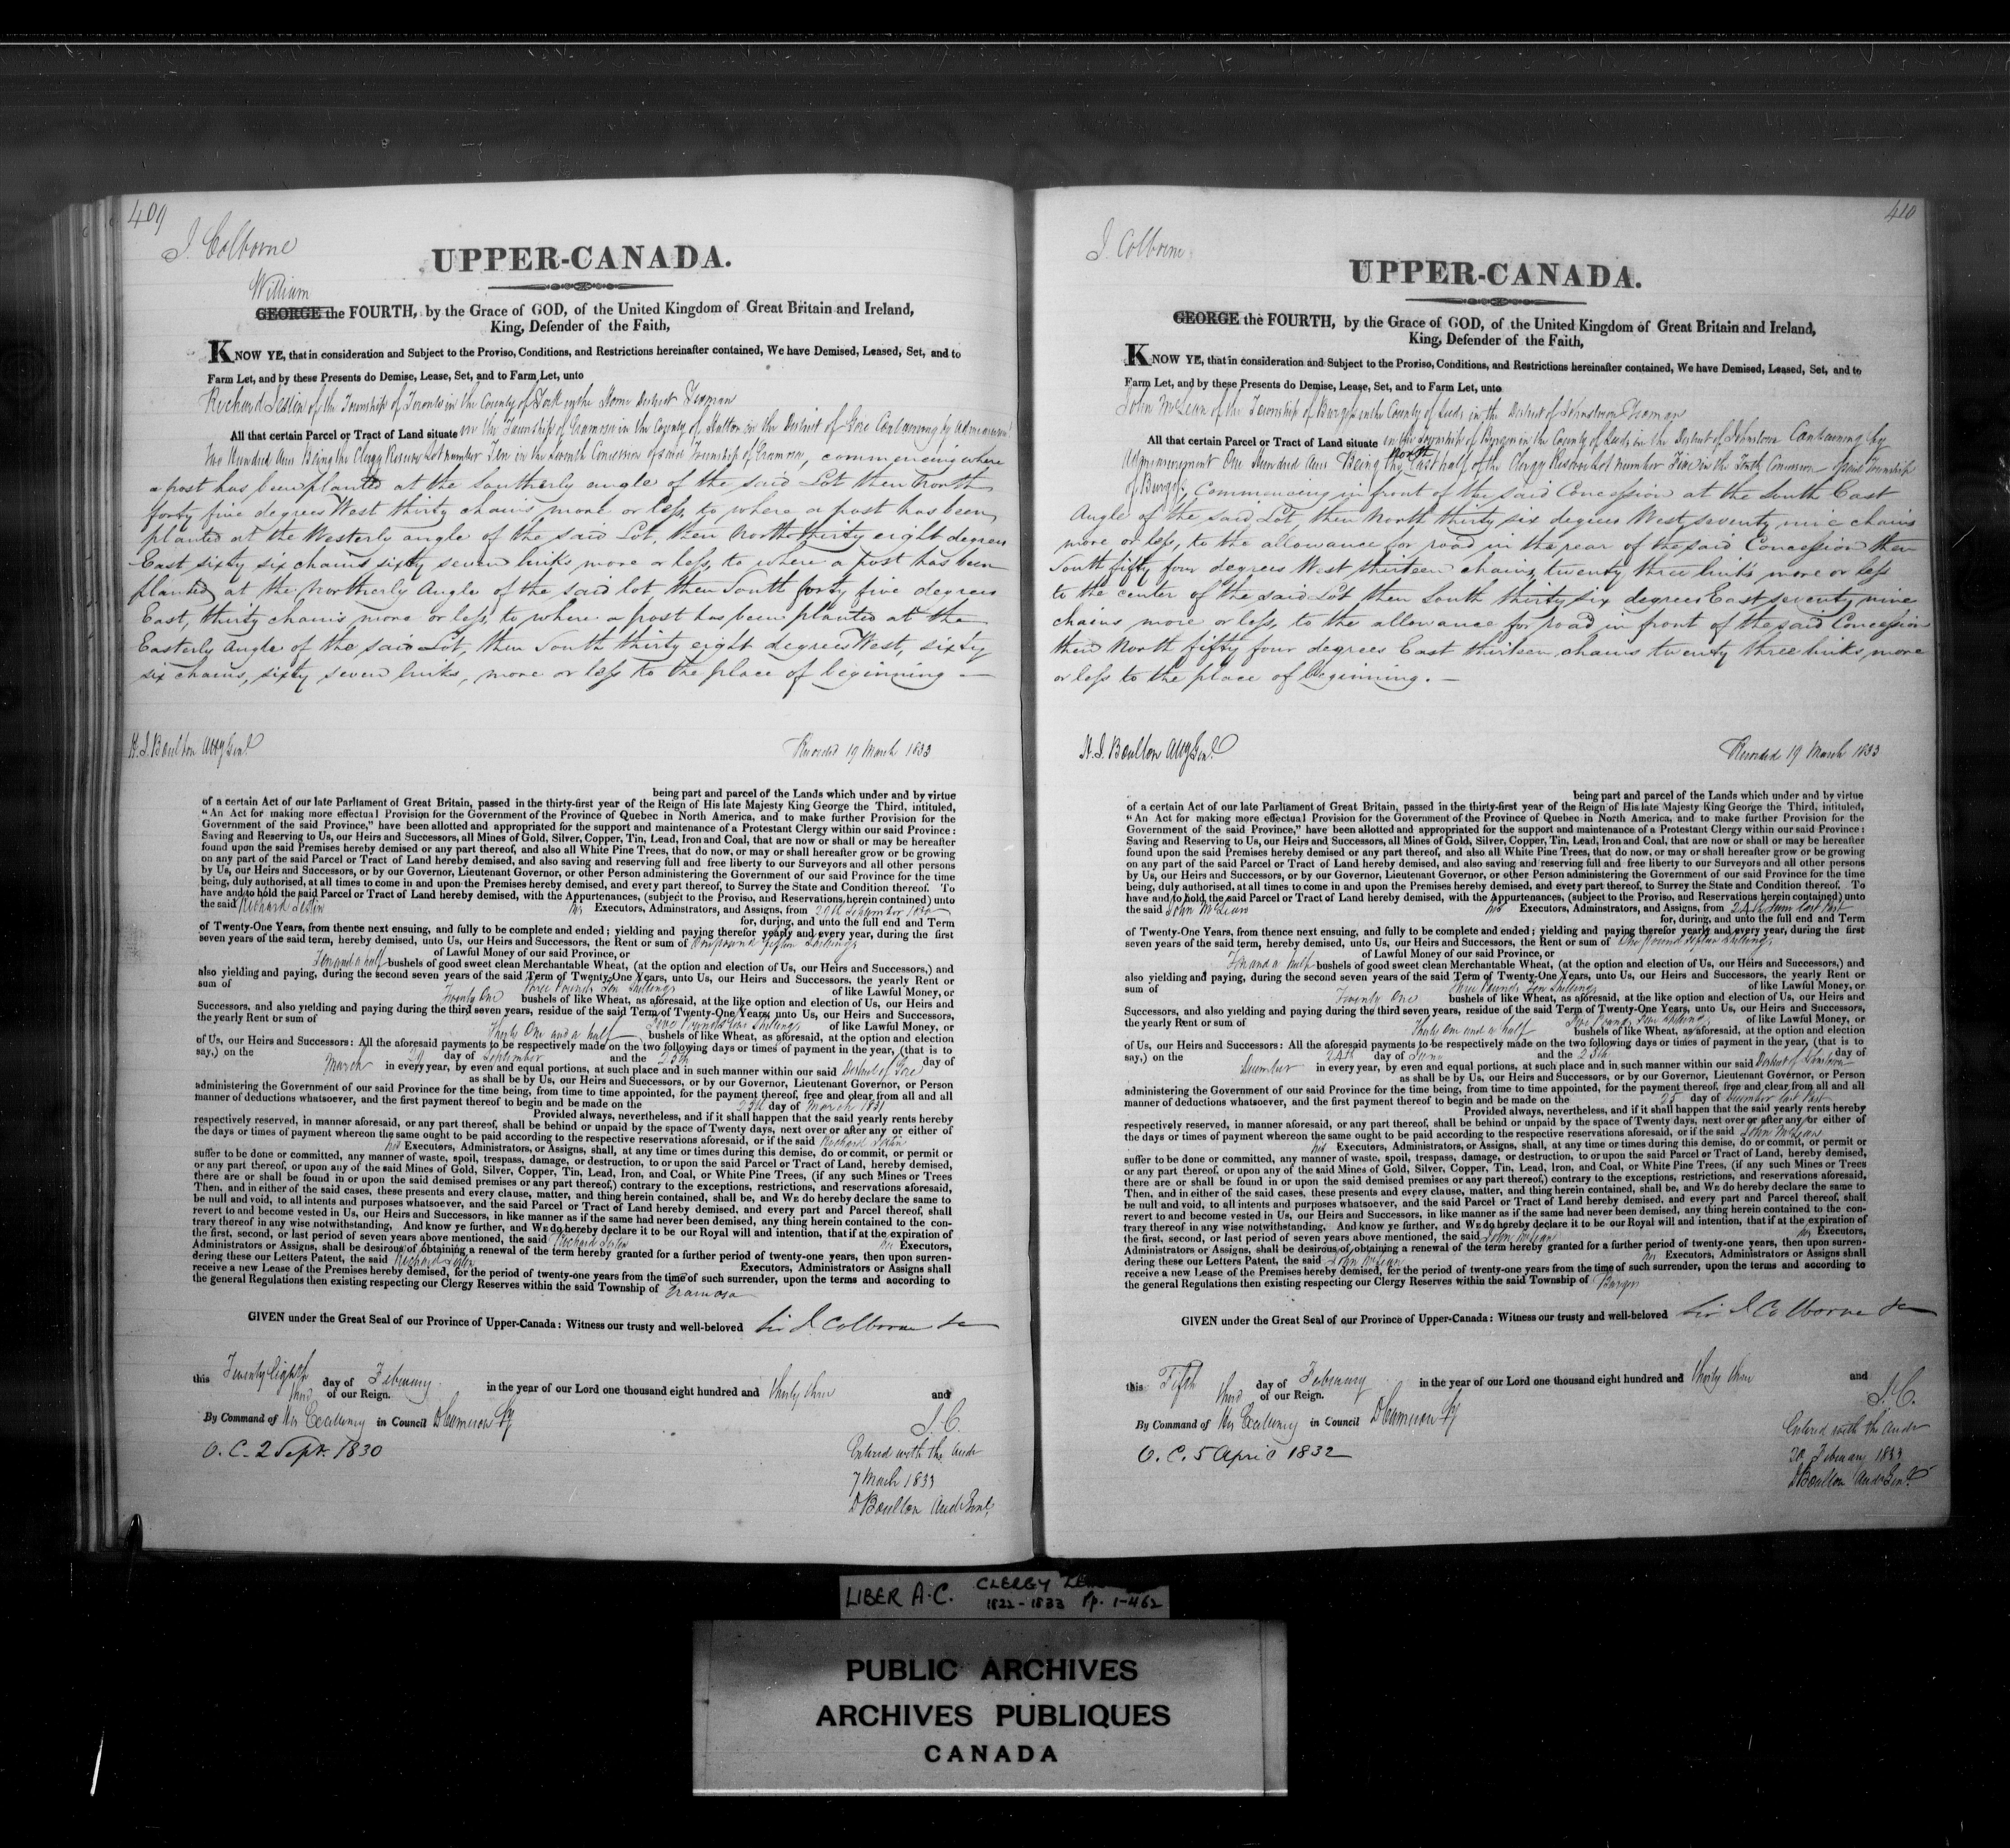 409
J. Colborne
UPPER-CANADA.
William
GEORGE the FOURTH, by the Grace of GOD, of the United Kingdom of Great Britain and Ireland,
King, Defender of the Faith,
KNOW YE, that in consideration and Subject to the Proviso, Conditions, and Restrictions hereinafter contained, We have Demised, Leased, Set, and to
Farm Let, and by these Presents do Demise, Lease, Set, and to Farm Let, unto
Richard of the Township of Toronto in the County of York in the Home District Yeoman
All that certain Parcel or Tract of Land situate in the Township of Eramosa in the County of Halton in the District of Gore Containing by admeasurement
Two Hundred Acres Being the Clergy Reserve Lot number Ten in the Seventh Concession of said Township of Eramosa, commencing where
a post has been planted at the Southerly angle of the said Lot then North
forty five degrees West thirty chains more or less, to where a post has been
planted at the Westerly angle of the said Lot, then North thirty eight degrees
East sixty six chains sixty seven links more or less, to where a post has been
planted at the Northerly Angle of the said lot then South forty five degrees
East, thirty chains more or less, to where a post has been planted at the
Easterly Angle of the said Lot, then South thirty eight degrees West, sixty
six chains, sixty seven links, more or less to the place of beginning —
H. J. Boulton Atty Genl
Recorded 19 March 1833
being part and parcel of the Lands which under and by virtue
of a certain Act of our late Parliament of Great Britain, passed in the thirty-first year of the Reign of His late Majesty King George the Third, intituled,
"An Act for making more effectual Provision for the Government of the Province of Quebec in North America, and to make further Provision for the
Government of the said Province," have been allotted and appropriated for the support and maintenance of a Protestant Clergy within our said Province:
Saving and Reserving to Us, our Heirs and Successors, all Mines of Gold, Silver, Copper, Tin, Lead, Iron and Coal, that are now or shall or may be hereafter
found upon the said Premises hereby demised or any part thereof, and also all White Pine Trees, that do now, or may or shall hereafter grow or be growing
on any part of the said Parcel or Tract of Land hereby demised, and also saving and reserving full and free liberty to our Surveyors and all other persons
by Us, our Heirs and Successors, or by our Governor, Lieutenant Governor, or other Person administering the Government of our said Province for the time
being, duly authorised, at all times to come in and upon the Premises hereby demised, and every part thereof, to Survey the State and Condition thereof. To
have and to hold the said Parcel or Tract of Land hereby demised, with the Appurtenances, (subject to the Proviso, and Reservations herein contained) unto
the said Richard his Executors, Adminstrators, and Assigns, from 29th September 1830
for, during, and unto the full end and Term
of Twenty-One Years, from thence next ensuing, and fully to be complete and ended; yielding and paying therefor yearly and every year, during the first
seven years of the said term, hereby demised, unto Us, our Heirs and Successors, the Rent or sum of One pound fifteen Shillings
of Lawful Money of our said Province, or
Ten and a half bushels of good sweet clean Merchantable Wheat, (at the option and election of Us, our Heirs and Successors,) and
also yielding and paying, during the second seven years of the said Term of Twenty-One Years, unto Us, our Heirs and Successors, the yearly Rent or
sum of Three Pounds Ten Shillings of like Lawful Money, or
Twenty One bushels of like Wheat, as aforesaid, at the like option and election of Us, our Heirs and
Successors, and also yielding and paying during the third seven years, residue of the said Term of Twenty-One Years, unto Us, our Heirs and Successors,
the yearly Rent or sum of Five Pounds five Shillings of like Lawful Money, or
Thirty One and a half bushels of like Wheat, as aforesaid, at the option and election
of Us, our Heirs and Successors: All the aforesaid payments to be respectively made on the two following days or times of payment in the year, (that is to
say,) on the 29 day of September and the 25th day of
March in every year, by even and equal portions, at such place and in such manner within our said District of Gore
as shall be by Us, our Heirs and Successors, or by our Governor, Lieutenant Governor, or Person
administering the Government of our said Province for the time being, from time to time appointed, for the payment thereof, free and clear from all and all
manner of deductions whatsoever, and the first payment thereof to begin and be made on the 25th day of March 1831
Provided always, nevertheless, and if it shall happen that the said yearly rents hereby
respectively reserved, in manner aforesaid, or any part thereof, shall be behind or unpaid by the space of Twenty days, next over or after any or either of
the days or times of payment whereon the same ought to be paid according to the respective reservations aforesaid, or if the said Richard
his Executors, Administrators, or Assigns, shall, at any time or times during this demise, do or commit, or permit or
suffer to be done or committed, any manner of waste, spoil, trespass, damage, or destruction, to or upon the said Parcel or Tract of Land, hereby demised,
or any part thereof, or upon any of the said Mines of Gold, Silver, Copper, Tin, Lead, Iron, and Coal, or White Pine Trees, (if any such Mines or Trees
there are or shall be found in or upon the said demised premises or any part thereof,) contrary to the exceptions, restrictions, and reservations aforesaid,
Then, and in either of the said cases, these presents and every clause, matter, and thing herein contained, shall be, and WE do hereby declare the same to
be null and void, to all intents and purposes whatsoever, and the said Parcel or Tract of Land hereby demised, and every part and Parcel thereof, shall
revert to and become vested in Us, our Heirs and Successors, in like manner as if the same had never been demised, any thing herein contained to the con-
trary thereof in any wise notwithstanding. And know ye further, and WE do hereby declare it to be our Royal will and intention, that if at the expiration of
the first, second, or last period of seven years above mentioned, the said Richard his Executors,
Administrators or Assigns, shall be desirous of obtaining a renewal of the term hereby granted for a further period of twenty-one years, then upon surren-
dering these our Letters Patent, the said Richard Executors, Administrators or Assigns shall
receive a new Lease of the Premises hereby demised, for the period of twenty-one years from the time of such surrender, upon the terms and according to
the general Regulations then existing respecting our Clergy Reserves within the said Township of Eramosa
GIVEN under the Great Seal of our Province of Upper-Canada: Witness our trusty and well-beloved Sir J. Colborne &c
this Twenty Eighth day of February in the year of our Lord one thousand eight hundred and thirty three and
third of our Reign.
By Command of His Excellency in Council D Cameron Sy
J. C.
O. C. 2 Sept. 1830
Entered with the Audr
7 March 1833
D Boulton Aud Genl
410
J Colborne
UPPER-CANADA.
GEORGE the FOURTH, by the Grace of GOD, of the United Kingdom of Great Britain and Ireland,
King, Defender of the Faith,
KNOW YE, that in consideration and Subject to the Proviso, Conditions, and Restrictions hereinafter contained, We have Demised, Leased, Set, and to
Farm Let, and by these Presents do Demise, Lease, Set, and to Farm Let, unto
John McLean of the Township of Burgess in the County of Leeds in the District of Johnstown Yeoman
All that certain Parcel or Tract of Land situate in the Township of Burgess in the County of Leeds in the District of Johnstown Containing by
Admeasurement One Hundred Acres Being the North East half of the Clergy Reserve Lot number Five in the Tenth Concession of said Township
of Burgess, Commencing in front of the said Concession at the South East
Angle of the said Lot, then North thirty six degrees West seventy nine chains
more or less, to the allowance for road in the rear of the said Concession then
South fifty four degrees West thirteen chains, twenty three links more or less
to the center of the said Lot then South thirty six degrees East seventy nine
chains more or less, to the allowance for road in front of the said Concession
then North fifty four degrees East thirteen chains twenty three links, more
or less to the place of beginning. —
H. J. Boulton Atty Genl
Recorded 19 March 1833
being part and parcel of the Lands which under and by virtue
of a certain Act of our late Parliament of Great Britain, passed in the thirty-first year of the Reign of His late Majesty King George the Third, intituled,
"An Act for making more effectual Provision for the Government of the Province of Quebec in North America, and to make further Provision for the
Government of the said Province," have been allotted and appropriated for the support and maintenance of a Protestant Clergy within our said Province:
Saving and Reserving to Us, our Heirs and Successors, all Mines of Gold, Silver, Copper, Tin, Lead, Iron and Coal, that are now or shall or may be hereafter
found upon the said Premises hereby demised or any part thereof, and also all White Pine Trees, that do now, or may or shall hereafter grow or be growing
on any part of the said Parcel or Tract of Land hereby demised, and also saving and reserving full and free liberty to our Surveyors and all other persons
by Us, our Heirs and Successors, or by our Governor, Lieutenant Governor, or other Person administering the Government of our said Province for the time
being, duly authorised, at all times to come in and upon the Premises hereby demised, and every part thereof, to Survey the State and Condition thereof. To
have and to hold the said Parcel or Tract of Land hereby demised, with the Appurtenances, (subject to the Proviso, and Reservations herein contained) unto
the said John McLean his Executors, Adminstrators, and Assigns, from 24th June last Past
for, during, and unto the full end and Term
of Twenty-One Years, from thence next ensuing, and fully to be complete and ended; yielding and paying therefor yearly and every year, during the first
seven years of the said term, hereby demised, unto Us, our Heirs and Successors, the Rent or sum of One Pound fifteen Shillings
of Lawful Money of our said Province, or
Ten and a half bushels of good sweet clean Merchantable Wheat, (at the option and election of Us, our Heirs and Successors,) and
also yielding and paying, during the second seven years of the said Term of Twenty-One Years, unto Us, our Heirs and Successors, the yearly Rent or
sum of Three Pounds Ten Shillings of like Lawful Money, or
Twenty One bushels of like Wheat, as aforesaid, at the like option and election of Us, our Heirs and
Successors, and also yielding and paying during the third seven years, residue of the said Term of Twenty-One Years, unto Us, our Heirs and Successors,
the yearly Rent or sum of Five Pounds five Shillings of like Lawful Money, or
Thirty One and a half bushels of like Wheat, as aforesaid, at the option and election
of Us, our Heirs and Successors: All the aforesaid payments to be respectively made on the two following days or times of payment in the year, (that is to
say,) on the 24th day of June and the 25th day of
December in every year, by even and equal portions, at such place and in such manner within our said District of Johnstown
as shall be by Us, our Heirs and Successors, or by our Governor, Lieutenant Governor, or Person
administering the Government of our said Province for the time being, from time to time appointed, for the payment thereof, free and clear from all and all
manner of deductions whatsoever, and the first payment thereof to begin and be made on the 25 day of December last Past
Provided always, nevertheless, and if it shall happen that the said yearly rents hereby
respectively reserved, in manner aforesaid, or any part thereof, shall be behind or unpaid by the space of Twenty days, next over or after any or either of
the days or times of payment whereon the same ought to be paid according to the respective reservations aforesaid, or if the said John McLean
his Executors, Administrators, or Assigns, shall, at any time or times during this demise, do or commit, or permit or
suffer to be done or committed, any manner of waste, spoil, trespass, damage, or destruction, to or upon the said Parcel or Tract of Land, hereby demised,
or any part thereof, or upon any of the said Mines of Gold, Silver, Copper, Tin, Lead, Iron, and Coal, or White Pine Trees, (if any such Mines or Trees
there are or shall be found in or upon the said demised premises or any part thereof,) contrary to the exceptions, restrictions, and reservations aforesaid,
Then, and in either of the said cases, these presents and every clause, matter, and thing herein contained, shall be, and WE do hereby declare the same to
be null and void, to all intents and purposes whatsoever, and the said Parcel or Tract of Land hereby demised, and every part and Parcel thereof, shall
revert to and become vested in Us, our Heirs and Successors, in like manner as if the same had never been demised, any thing herein contained to the con-
trary thereof in any wise notwithstanding. And know ye further, and WE do hereby declare it to be our Royal will and intention, that if at the expiration of
the first, second, or last period of seven years above mentioned, the said John McLean his Executors,
Administrators or Assigns, shall be desirous of obtaining a renewal of the term hereby granted for a further period of twenty-one years, then upon surren-
dering these our Letters Patent, the said John McLean his Executors, Administrators or Assigns shall
receive a new Lease of the Premises hereby demised, for the period of twenty-one years from the time of such surrender, upon the terms and according to
the general Regulations then existing respecting our Clergy Reserves within the said Township of Burgess
GIVEN under the Great Seal of our Province of Upper-Canada: Witness our trusty and well-beloved Sir J Colborne &c
this Fifth day of February in the year of our Lord one thousand eight hundred and thirty three and
third of our Reign.
By Command of His Excellency in Council D Cameron Sy
J. C.
O. C. 5 April 1832
Entered with the Audr
20 February 1833
D Boulton Aud Genl
LIBER A.C. CLERGY
1822-1833 Pp. 1-462
PUBLIC ARCHIVES
ARCHIVES PUBLIQUES
CANADA